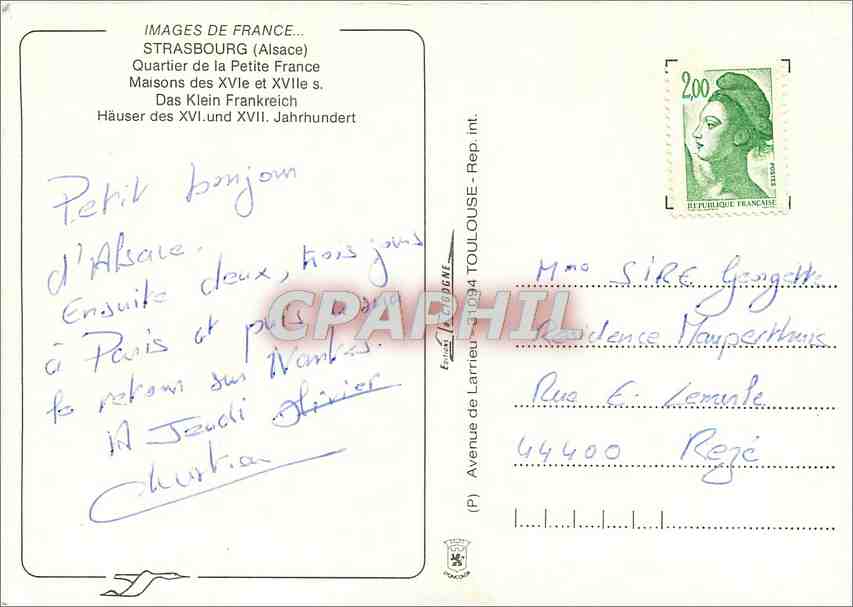 IMAGES DE FRANCE...
STRASBOURG (Alsace)
Quartier de la Petite France
Maisons des XVIe et XVIIe s.
Das Klein Frankreich
Häuser des XVI.und XVII. Jahrhundert
Petit bonjour
d'Alsace.
Ensuite deux, trois jours
à Paris et puis
le retour sur Nantes.
A Jeudi Olivier
Christian
Editions LA CIGOGNE
(P) Avenue de Larrieu - 31094 TOULOUSE - Rep. int.
2,00
POSTES
REPUBLIQUE FRANÇAISE
Mme SIRE Georgette
Résidence Mauperthuis
Rue E. Lemerle
44400 Rezé
CPAPHIL